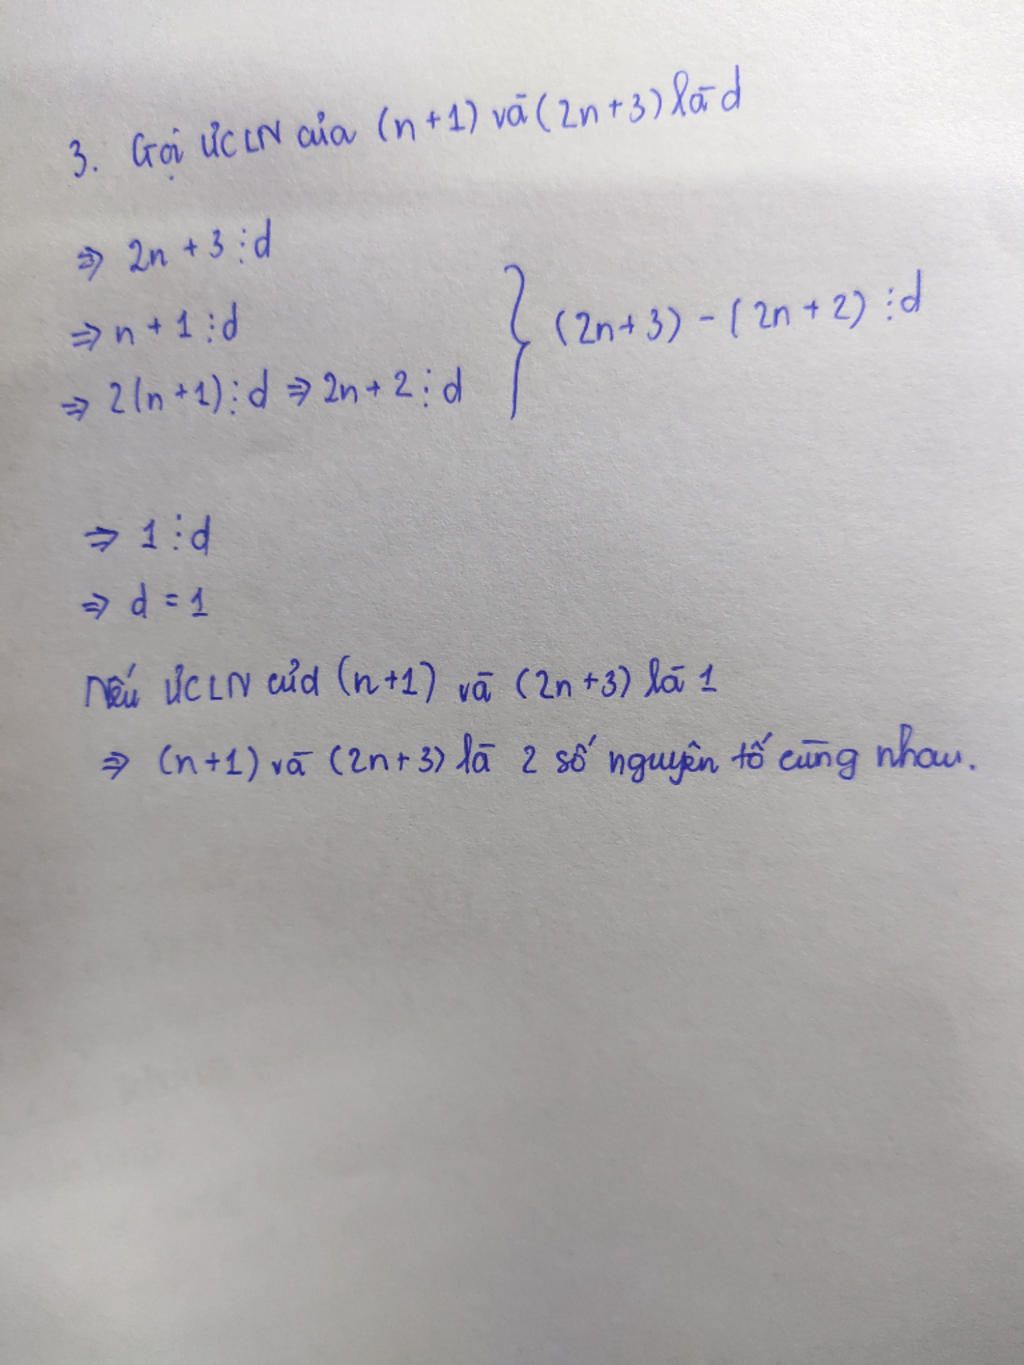 3. Gọi ƯCLN của (n+1) và (2n+3) là d
⇒ 2n + 3 ⋮ d
⇒ n + 1 ⋮ d
⇒ 2(n+1) ⋮ d ⇒ 2n + 2 ⋮ d } (2n+3) - (2n+2) ⋮ d
⇒ 1 ⋮ d
⇒ d = 1
Nếu ƯCLN của (n+1) và (2n+3) là 1
⇒ (n+1) và (2n+3) là 2 số nguyên tố cùng nhau.